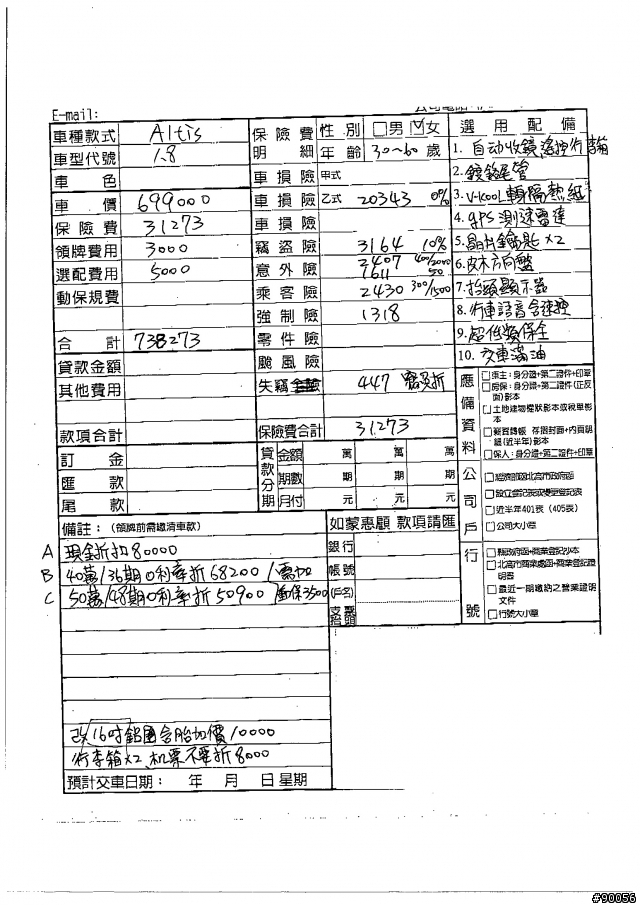 E-mail:
車種款式 Altis
車型代號 1.8
車色
車價 699000
保險費 31273
領牌費用 3000
選配費用 5000
動保規費
合計 738273
貸款金額
其他費用
款項合計
訂金
匯款
尾款
保險費明細 性別 □男 女
年齡 30~60 歲
車損險 甲式
車損險 乙式 20343 0%
車損險
竊盜險 3164 10%
意外險 2407 40/2000
7611 50
乘客險 2430 300/1500
強制險 1318
零件險
颱風險
失竊 447 免折
保險費合計 31273
貸款分期 金額 萬 萬 萬
期數 期 期 期
月付 元 元 元
選用配備
1. 自动收鏡
2. 鍍鉻尾管
3. V-KOOL 隔熱紙
4. GPS 測速雷達
5. 晶片鑰匙 x2
6. 皮木方向盤
7. 抬頭顯示器
8. 行車語音
9. 超低
10. 交車滿油
應備資料
□車主:身分證+第二證件+印章
□房保:身分證+第二證件(正反面)影本
□土地建物權狀影本或稅單影本
存摺封面+內頁明細(近半年)影本
□保人:身分證+第二證件+印章
公司戶
□經濟部或北高市政府函
□設立登記表或變更登記表
□近半年401表 (405表)
□公司大小章
行號
□縣政府函+商業登記抄本
□北高市商業處函+商業登記證明書
□最近一期繳納之營業證明文件
□行號大小章
備註: (領牌前需繳清車款)
A 現金折扣80000
B 40萬/36期0利率折68200 /需加
C 50萬/48期0利率折50900 /動保3500
改16吋鋁圈含胎加價10000
行李箱x2、机票不要折8000
預計交車日期: 年 月 日 星期
如蒙惠顧 款項請匯
銀行
帳號
(戶名)
支票抬頭
#90056